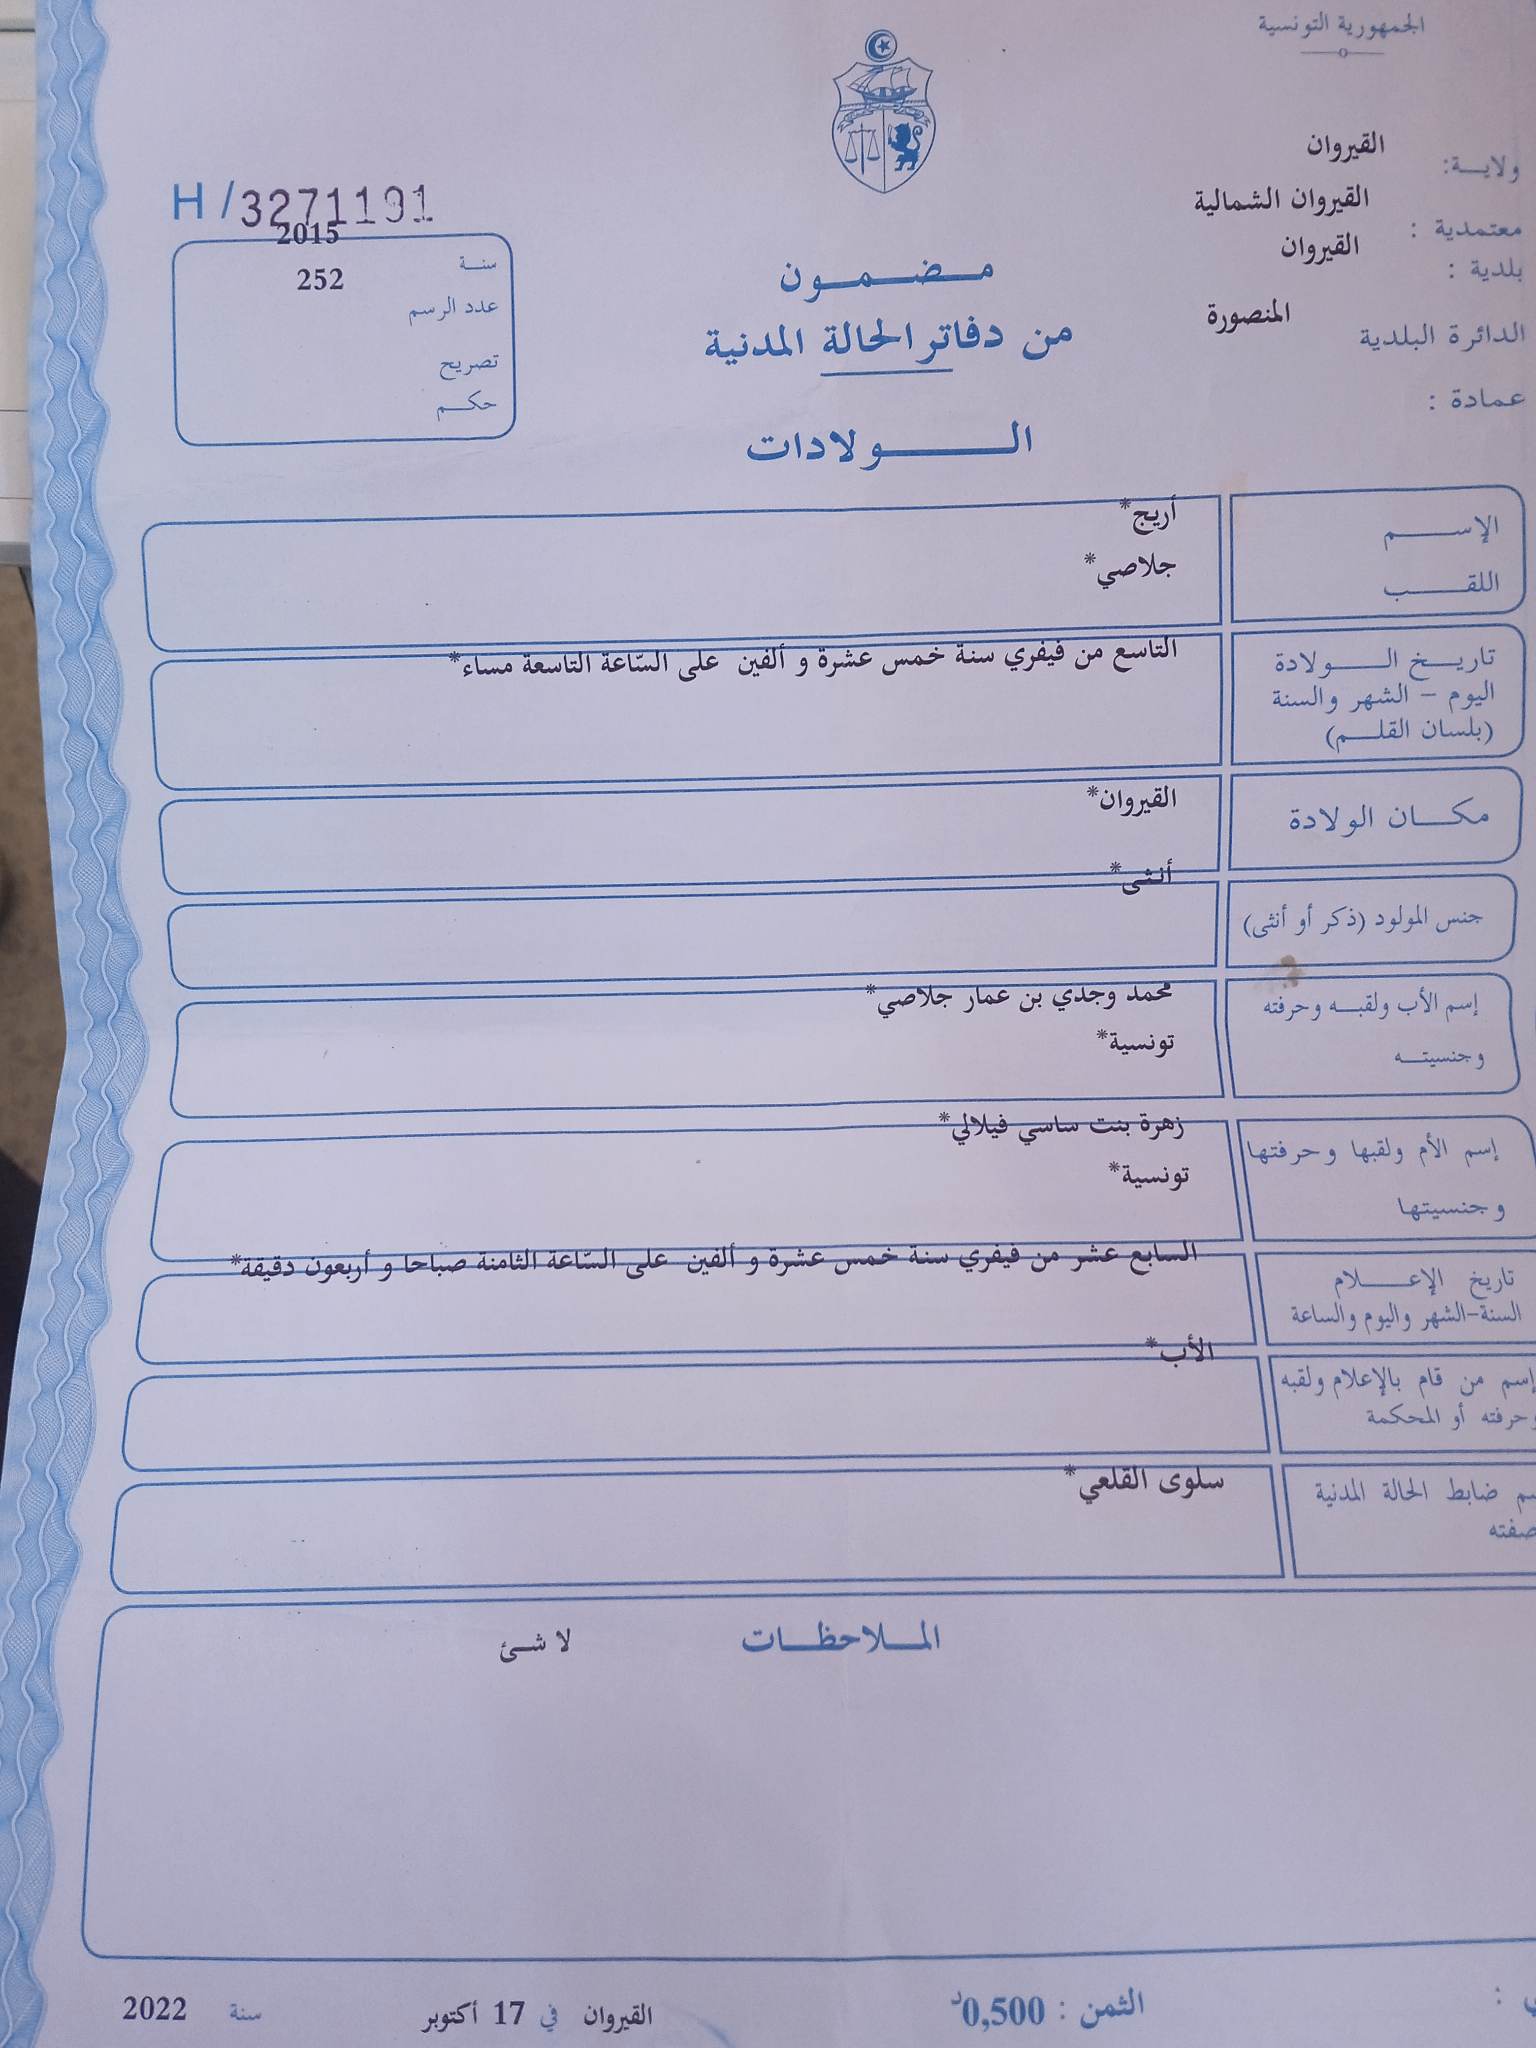 الجمهورية التونسية
ولاية: القيروان
معتمدية : القيروان الشمالية
بلدية : القيروان
الدائرة البلدية المنصورة
عمادة :
H / 3271191
سنة 2015
عدد الرسم 252
تصريح
حكم
مضمون
من دفاتر الحالة المدنية
الولادات
الإسم أريج*
اللقب جلاصي*
تاريخ الولادة التاسع من فيفري سنة خمس عشرة و ألفين على السّاعة التاسعة مساء*
اليوم - الشهر والسنة
(بلسان القلم)
مكان الولادة القيروان*
جنس المولود (ذكر أو أنثى) أنثى*
إسم الأب ولقبه وحرفته محمد وجدي بن عمار جلاصي*
وجنسيته تونسية*
إسم الأم ولقبها وحرفتها زهرة بنت ساسي فيلالي*
وجنسيتها تونسية*
تاريخ الإعلام السابع عشر من فيفري سنة خمس عشرة و ألفين على السّاعة الثامنة صباحا و أربعون دقيقة*
السنة-الشهر واليوم والساعة
إسم من قام بالإعلام ولقبه الأب*
وحرفته أو المحكمة
ضابط الحالة المدنية سلوى القلعي*
الملاحظات لا شئ
الثمن : 0,500د
القيروان في 17 أكتوبر سنة 2022